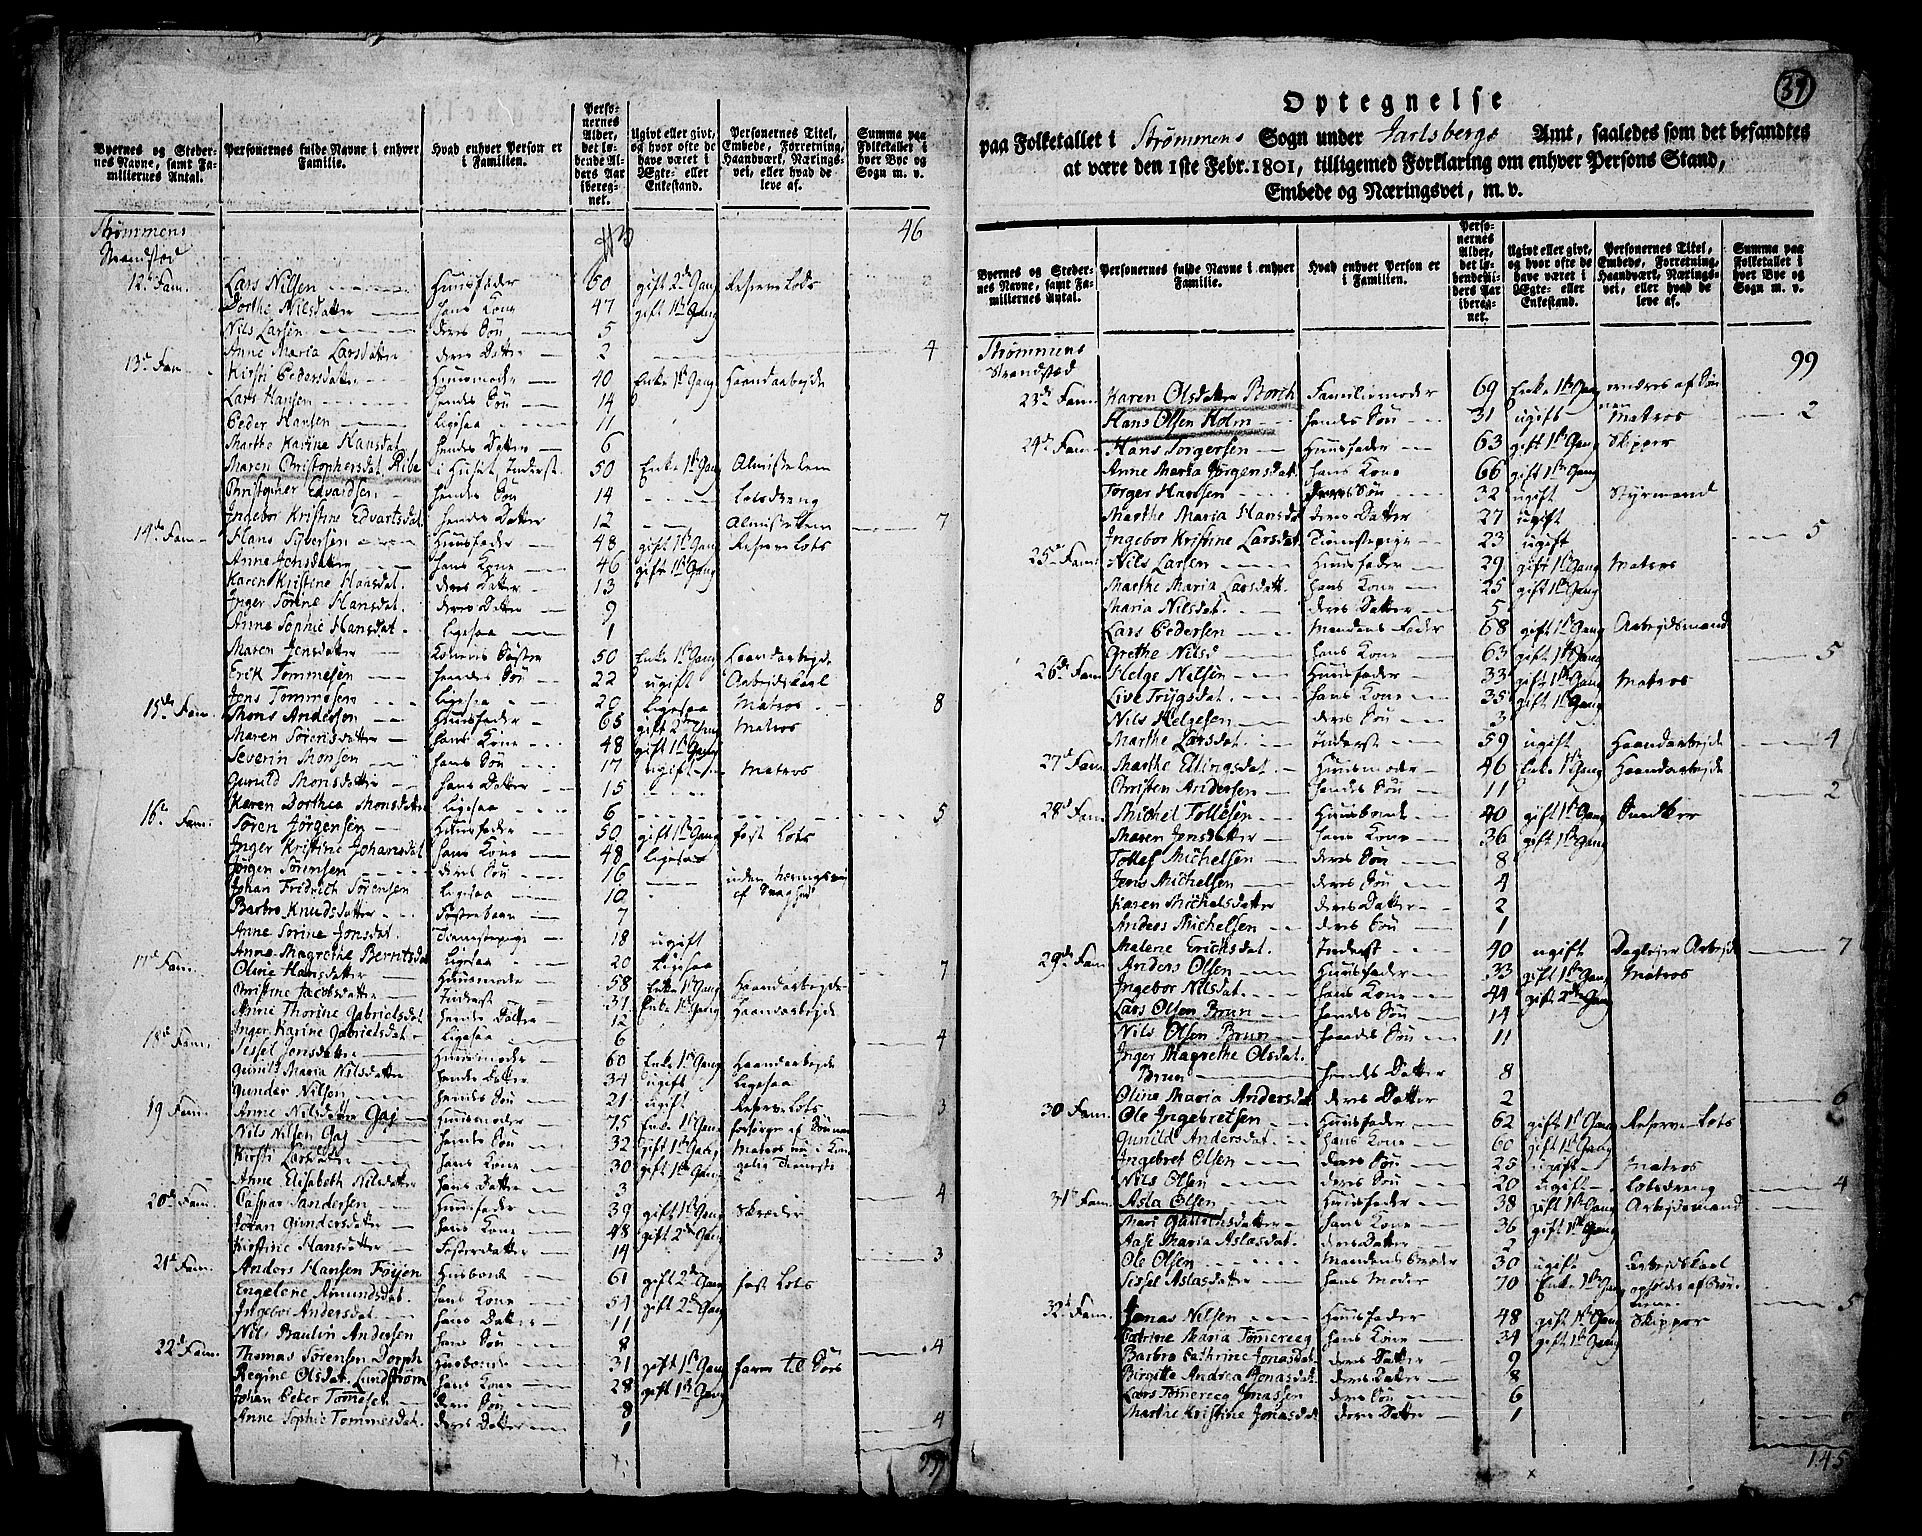 Byernes og Steder-
nes Navne, samt Fa-
miliernes Antal.
Personernes fulde Navne i enhver
Familie.
Hvad enhver Person er
i Familien.
Perso-
nernes
Alder,
det lø-
bende Al-
ders Aar
ibereg-
net.
Ugivt eller givt,
og hvor ofte de
have været i
Ægte- eller
Enkestand.
Personernes Titel,
Embede, Forretning,
Haandværk, Nærings-
vei, eller hvad de
leve af.
Summa paa
Folketallet i
hver Bye og
Sogn m. v.
Strømmens
Strandstæd
46
12te Fam. Lars Nilsen Huusfader 60 gift 2de Gang Reserve Lods
Dorthe Nilsdatter hans Kone 47 gift 1ste Gang
Nils Larsen deres Søn 5
Anne Maria Larsdatter deres Datter 2 4
13de Fam Kirsti Pedersdatter Huusmoder 40 Enke 1ste Gang Haandarbejde
Lars Hansen hendes Søn 14
Peder Hansen Ligesaa 11
Marthe Karine Hansdat. hendes Datter 6
Maren Christophersdat. Ribe i Huset Inderst 50 Enke 1ste Gang Almisselem
Christopher Edvardsen hendes Søn 14 Lotsdreng
Ingebor Kristine Edvartsdat. hendes Datter 12 Almisselem 7
14de Fam. Hans Sybersen Huusfader 48 gift 1ste Gang Reserve Lots
Anne Jensdatter hans Kone 46 gift 1ste Gang
Karen Kristine Hansdat. deres Datter 13
Inger Sørine Hansdat. deres Datter 9
Anne Sophie Hansdat. Ligesaa 1
Maren Jensdatter Konens Søster 50 Enke 1ste Gang Haandarbejde
Erik Tommesen hendes Søn 22 ugift Arbejdskarl
Jens Tommesen Ligesaa 20 Ligesaa Matros 8
15de Fam. Mons Andersen Huusfader 65 gift 2den Gang Matros
Maren Sørensdatter hans Kone 48 gift 1ste Gang
Severin Monsen hans Søn 17 ugift Matros
Gunild Monsdatter hans Datter 15
Karen Dorthea Monsdatter Ligesaa 6 5
16de Fam. Søren Jørgensen Huusfader 50 gift 1ste Gang fast Lots
Inger Kristine Johansdat hans Kone 48 Ligesaa
Jørgen Sørensen deres Søn 16 uden Næringsvei
Johan Fridrich Sørensen Ligesaa 10 af Svaghed
Barbro Knudsdatter Fosterbarn 7
Anne Sorine Jonsdat. Tienestepige 18 ugift
Anne Magrethe Berntsdat Ligesaa 20 Ligesaa 7
17de Fam. Oline Hansdatter Huusmoder 58 Enke 1ste Gang Haandarbejde
Christine Jacobsdatter Inderst 31 Enke 1ste Gang Haandarbejde
Anne Thorine Gabrielsdat hendes Datter 12
Inger Karine Gabrielsdat. Ligesaa 6 4
18de Fam. Sissel Jonsdatter Huusmoder 60 Enke 1ste Gang Haandarbejde
Gunild Maria Nilsdatter hendes Datter 34 ugift Ligesaa
Gunder Nilsen hendes Søn 21 ugift Reserve Lots 3
19 Fam. Anne Nilsdatter Gaj Huusmoder 75 Enke 1ste Gang forsørges af Sønnen
Nils Nilsen Gaj hendes Søn 32 gift 1ste Gang Matros nu i Kon-
Kirsti Larsdatter hans Kone 30 gift 1ste Gang gelig Tieneste
Anne Elisabeth Nilsdatter hans Datter 3 4
20de Fam. Caspar Sandersen Huusfader 39 gift 1ste Gang Skræder
Joran Gundersdatter hans Kone 48 gift 2de Gang
Kirstine Hansdatter Fosterdatter 14 3
21de Fam. Anders Hansen Føijen Husbonde 61 gift 2de Gang fast Lots
Engelene Amundsdat. hans Kone 54 gift 2de Gang
Ingebor Andersdat. hans Datter 11
Nils Paulin Andersen hans Søn 8 4
22de Fam. Thomas Sørensen Dorph Husbonde 31 gift 1ste Gang farer til Søes
Regine Olsdat. Lundstrøm hans Kone 28 gift 1ste Gang
Johan Peter Tommesen deres Søn 8
Anne Sophie Tommesdat. deres Datter 1 4
99
39
Optegnelse
paa Folketallet i Strømmens Sogn under Jarlsbergs Amt, saaledes som det befandtes
at være den 1ste Febr. 1801, tilligemed Forklaring om enhver Persons Stand,
Embede og Næringsvei, m. v.
Byernes og Steder-
nes Navne, samt Fa-
miliernes Antal.
Personernes fulde Navne i enhver
Familie.
Hvad enhver Person er
i Familien.
Perso-
nernes
Alder,
det lø-
bende Al-
ders Aar
ibereg-
net.
Ugivt eller givt,
og hvor ofte de
have været i
Ægte- eller
Enkestand.
Personernes Titel,
Embede, Forretning,
Haandværk, Nærings-
vei, eller hvad de
leve af.
Summa paa
Folketallet i
hver Bye og
Sogn m. v.
Strømmens
Strandstæd
99
23de Fam. Karen Olsdatter Borch Familiemoder 69 Enke 1ste Gang ernæres af Søn
nen
Hans Olsen Holm hendes Søn 31 ugift Matros 2
24de Fam. Hans Torgersen Huusfader 63 gift 1ste Gang Skipper
Anne Maria Jørgensdat. hans Kone 66 gift 1ste Gang
Torger Hansen deres Søn 32 ugift Styrmand
Marthe Maria Hansdat deres Datter 27 ugift
Ingebor Kristine Larsdat. Tienestepige 23 ugift 5
25de Fam. Nils Larsen Huusfader 29 gift 1ste Gang Matros
Marthe Maria Larsdatt. hans Kone 25 gift 1ste Gang
Maria Nilsdat. deres Datter 5
Lars Pedersen Mandens Fader 68 gift 1ste Gang Arbejdsmand
Grethe Nilsd hans Kone 63 gift 1ste Gang 5
26de Fam. Helge Nilsen Huusfader 33 gift 1ste Gang Matros
Live Trygsdat. hans Kone 35 gift 1ste Gang
Nils Helgesen deres Søn 3
Marthe Larsdat. Inderst 59 ugift Haandarbejde 4
27de Fam. Marthe Ellingsdat. Huusmoder 46 Enke 1ste Gang Haandarbejde
Christen Andersen hendes Søn 11 2
28de Fam. Michel Tollefsen Huusbonde 40 gift 1ste Gang Snedker
Maren Jensdatter hans Kone 36 gift 1ste Gang
Tollef Michelsen deres Søn 8
Jens Michelsen deres Søn 4
Karen Michelsdatter deres Datter 2
Anders Michelsen deres Søn 1
Malene Erichsdat. Inderst 40 ugift Daglejer Arbejde 7
29de Fam. Anders Olsen Huusfader 33 gift 1ste Gang Matros
Ingebor Nilsdat. hans Kone 44 gift 2de Gang
Lars Olsen Brun hendes Søn 14
Nils Olsen Brun hendes Søn 11
Inger Magrethe Olsdat.
Brun hendes Datter 8
Oline Maria Andersdat deres Datter 2 6
30 Fam. Ole Ingebretsen Huusfader 62 gift 1ste Gang Reserve Lots
Gunild Andersdat. hans Kone 60 gift 1ste Gang
Ingebret Olsen deres Søn 25 ugift Matros
Nils Olsen deres Søn 20 ugift Lotsdreng 4
31te Fam. Asla Olsen Huusfader 38 gift 1ste Gang Arbejdsmand
Mari hans Kone 36 gift 1ste Gang
Aase Maria Aslasdat. deres Datter 2
Ole Olsen Mandens Broder 30 ugift Arbejdskarl
Sissel Aslasdatter hans Moder 70 Enke 1ste Gang opholdes af Bør-
nene 5
32te Fam. Jonas Nilsen Huusfader 48 gift 1ste Gang Skipper
Catrine Maria Tømereeg hans Kone 34 gift 1ste Gang
Barbro Cathrine Jonasdat. deres Datter 9
Birgitte Andrea Jonasdat. deres Datter 8
Lars Tømereeg Jonassen deres Søn 6
Marthe Kristine Jonasdat deres Datter 1 6
145